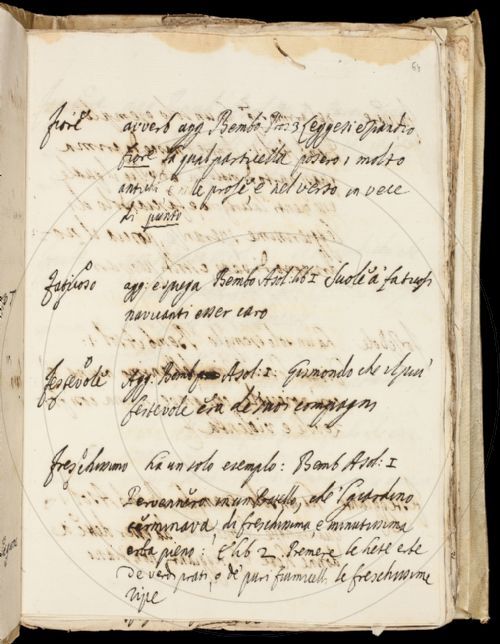 64
fiore avverb agg Bembo Pros 3 Leggesi et
fiore la qual particella posero i molto
antichi e nelle prose, e nel verso in vece
di punto
faticoso agg: e spiega Bembo Asol: lib I Suole a faticosi
naviganti esser caro
festevole Agg. Bembo Asol: I. Gismondo che il più
festevole era de suoi compagni
freschissimo ha un solo esempio: Bemb Asol: I
Pervennero in un
di freschissima e minutissima
erba pieno: E lib 2 Premere le liete erbe
de verdi prati, o de puri fiumicelli le freschissime
ripe